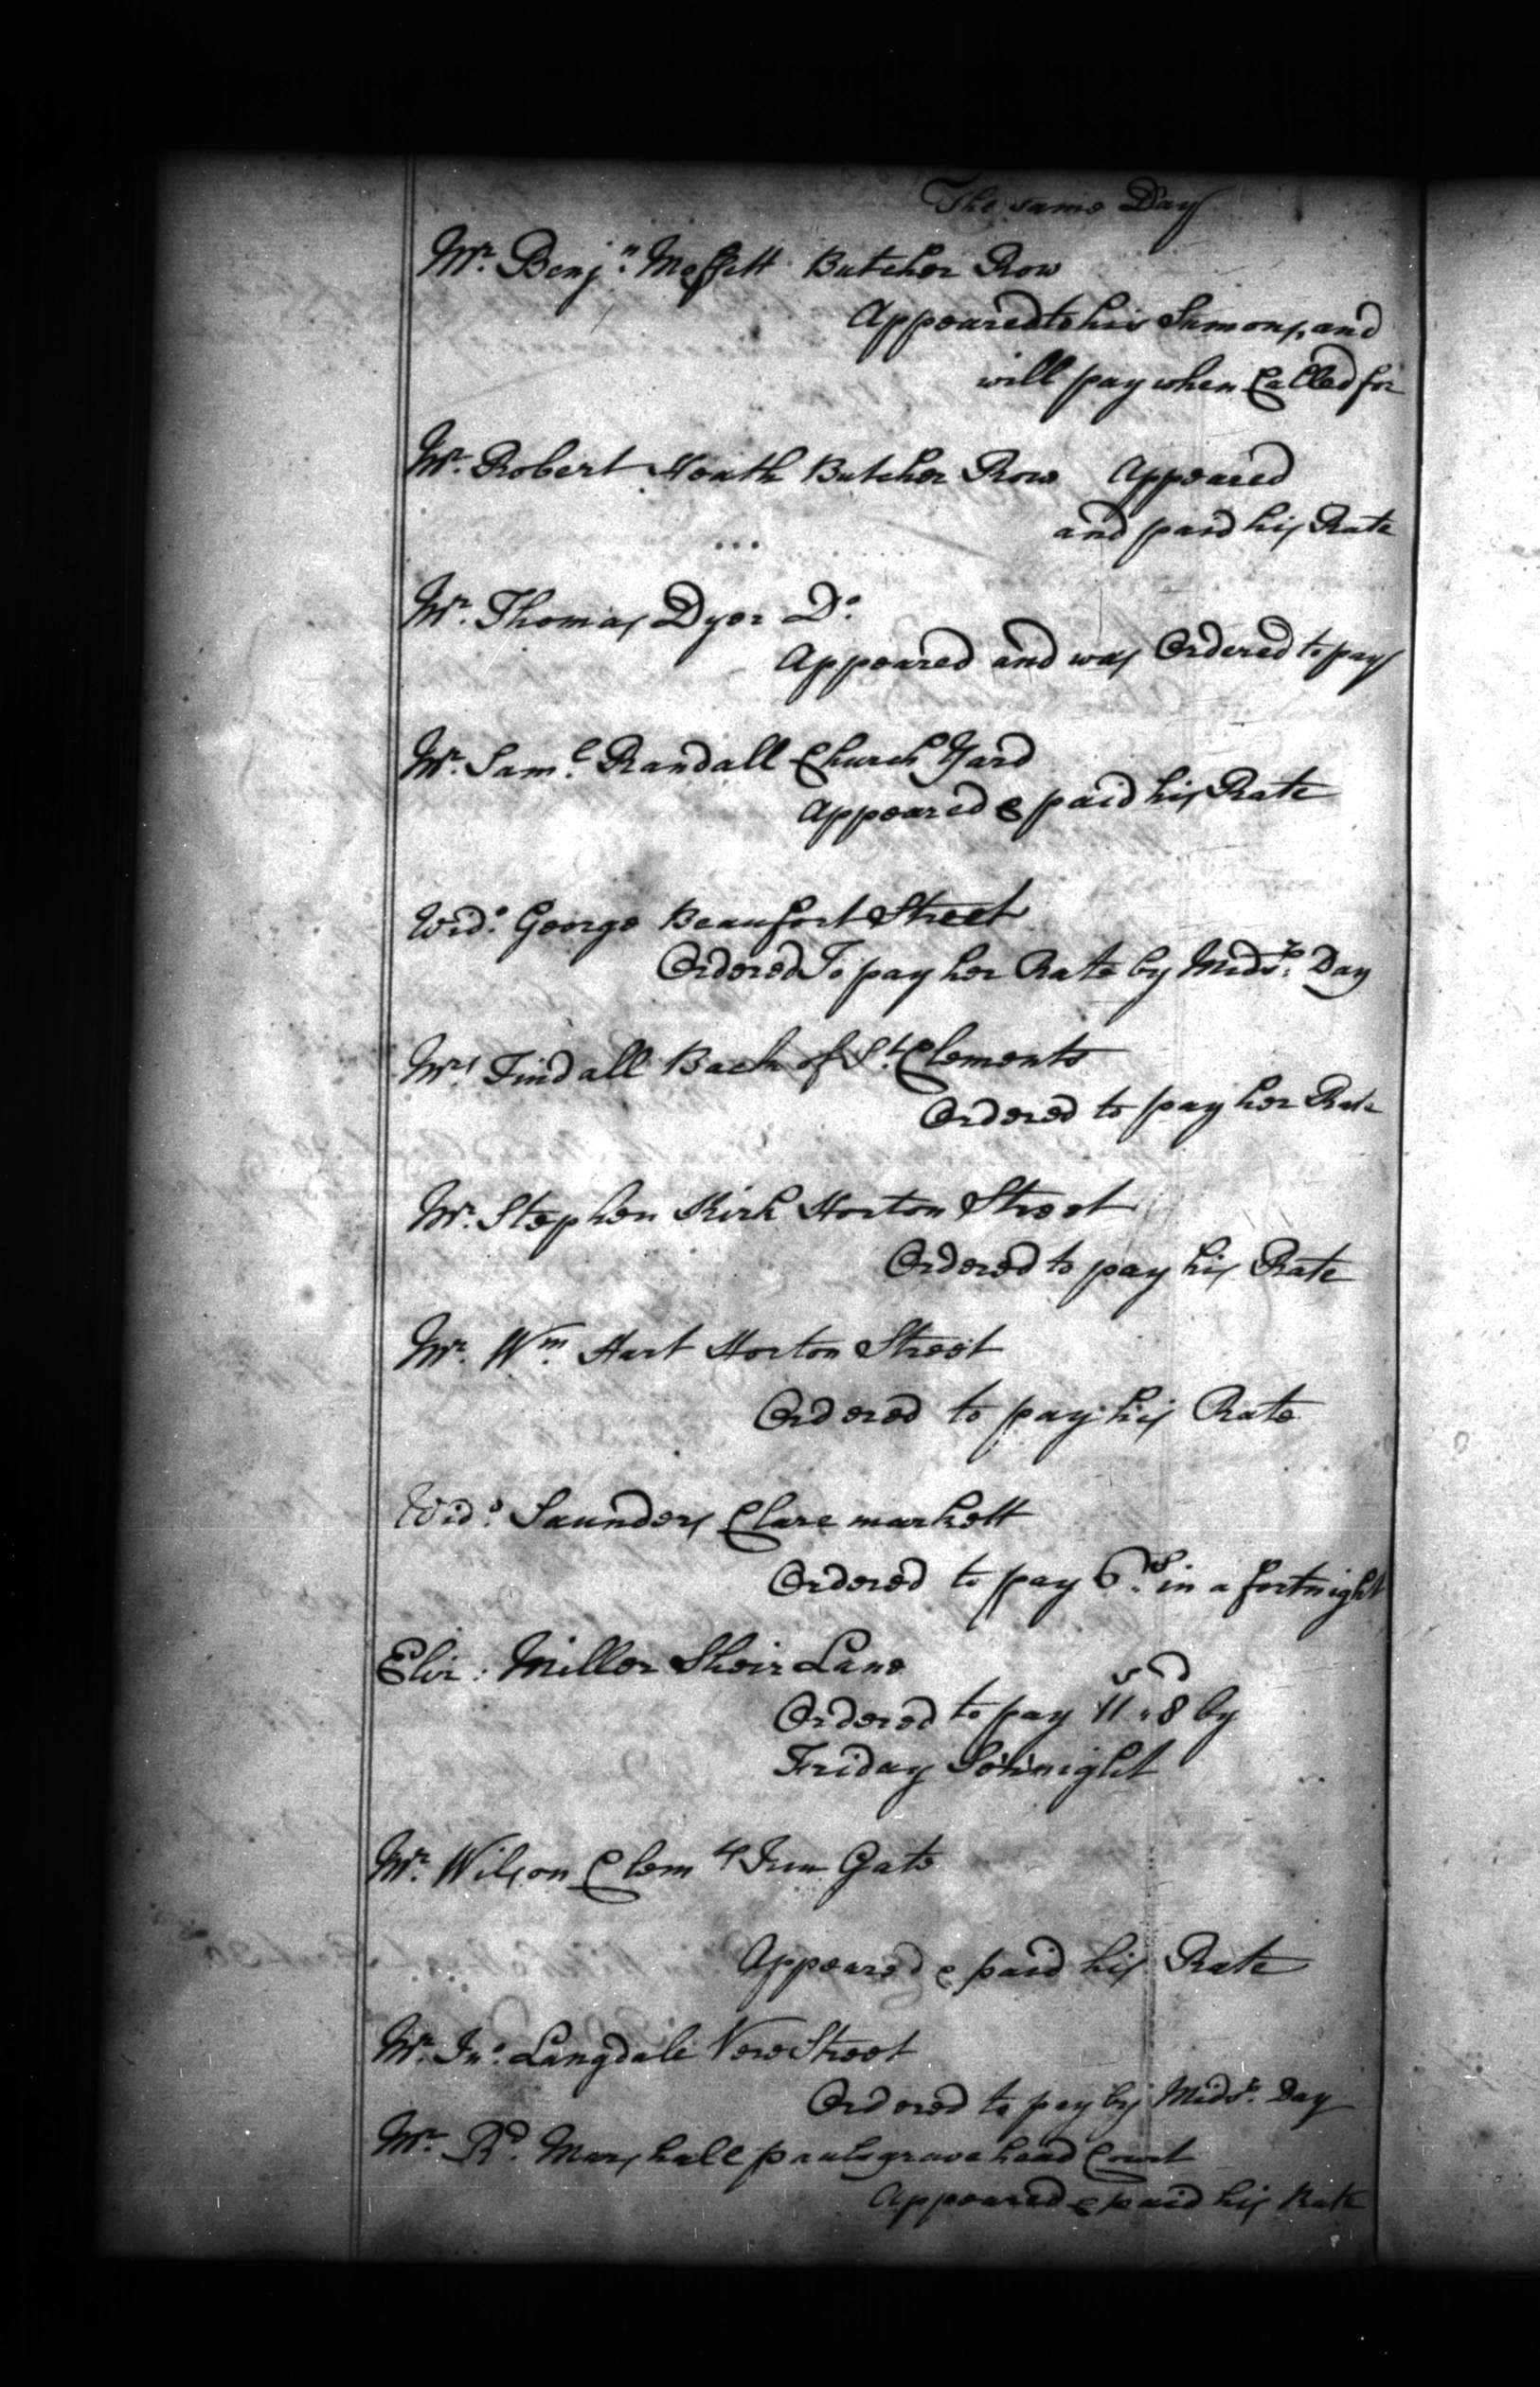 The same Day
Mr. Benjn. Moffett Butcher Row
Appeared to his Sumons, and
will pay when Called for
Mr. Robert Heath Butcher Row Appeared
and paid his Rate
Mr. Thomas Dyer Do.
Appeared and was Ordered to pay
Mr. Saml. Randall Church Yard
Appeared & paid his Rate
Wido. George Beaufort Street
Ordered To pay her Rate by Midsr. Day
Mrs. Tindall Back of St. Clements
Ordered to pay her Rate
Mr. Stephen Kirk Horton Street
Ordered to pay his Rate
Mr. Wm. Hart Horton Street
Ordered to pay his Rate
Wido. Saunders Clare markett
Ordered to pay 6s. in a fortnight
Eliz: Miller Sheir Lane
Ordered to pay 11s " 8d by
Friday Sevnnight
Mr. Wilson Clemts Inn Gate
Appeared & paid his Rate
Mr. Jno. Langdale New Street
Ordered to pay by Midsr. Day
Mr. Rd. Marshall paulsgrave head Court
Appeared & paid his Rate